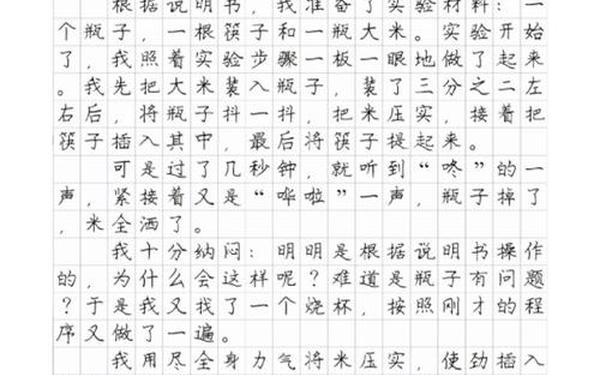 根据说明书，我准备了实验材料：一
个瓶子，一根筷子和一瓶大米。实验开始
了，我照着实验步骤一板一眼地做了起来
。我先把大米装入瓶子，装了三分之二左
右后，将瓶子抖一抖，把米压实，接着把
筷子插入其中，最后将筷子提起来。
可是过了几秒钟，就听到“咚”的一
声，紧接着又是“哗啦”一声，瓶子掉了
，米全洒了。
我十分纳闷：明明是根据说明书操作
的，为什么会这样呢？难道是瓶子有问题
？于是我又找了一个烧杯，按照刚才的程
序又做了一遍。
我用尽全身力气将米压实，使劲插入